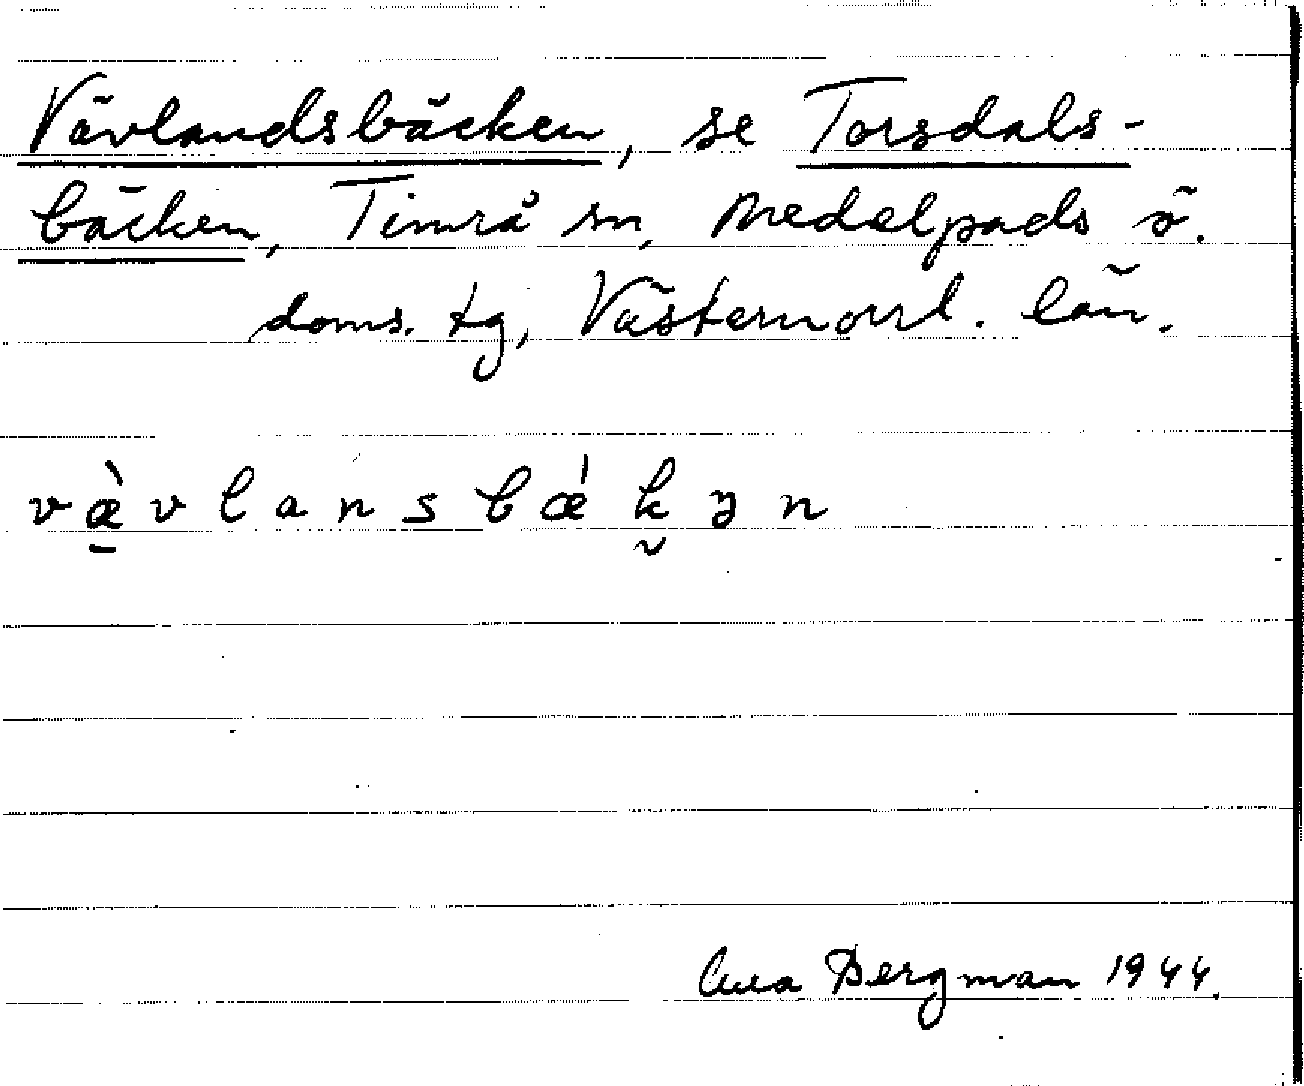 Vävlandsbäcken, se Torsdals-
bäcken, Timrå sn, Medelpads ö.
doms. tg, Västernorrl. län.
væ̀vlansbǽkən
Bergman 1944.